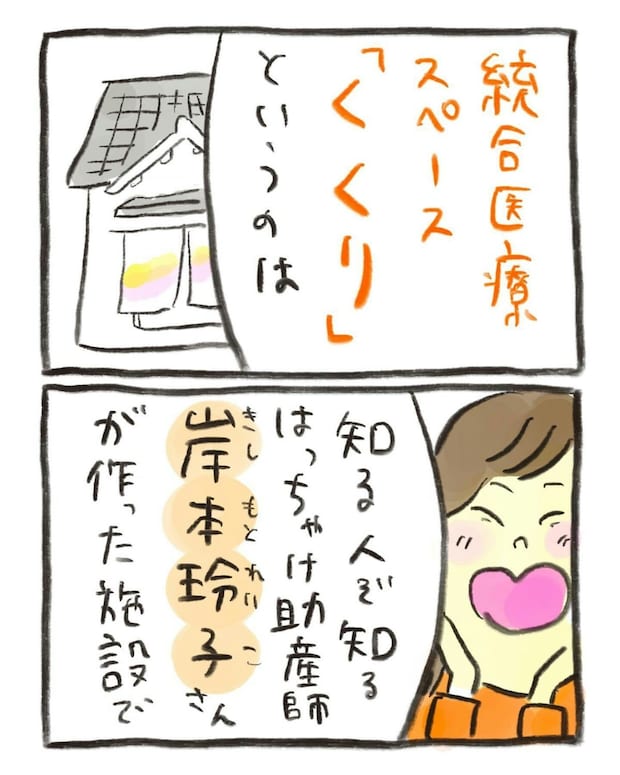 統合医療
スペース
「くくり」
というのは
知る人ぞ知る
はっちゃけ助産師
岸本玲子さん
きしもとれいこ
が作った施設で